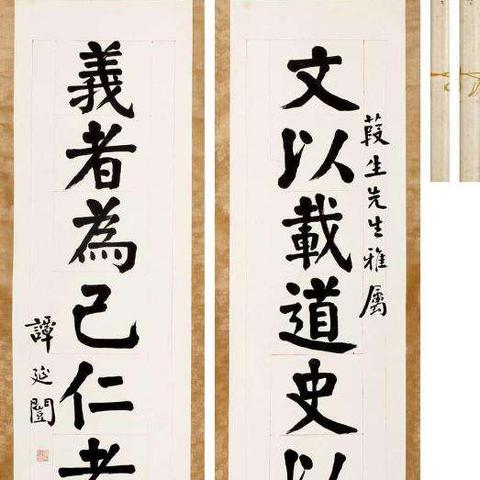 文以載道史以
葭生先生雅属
義者為己仁者
譚延闓